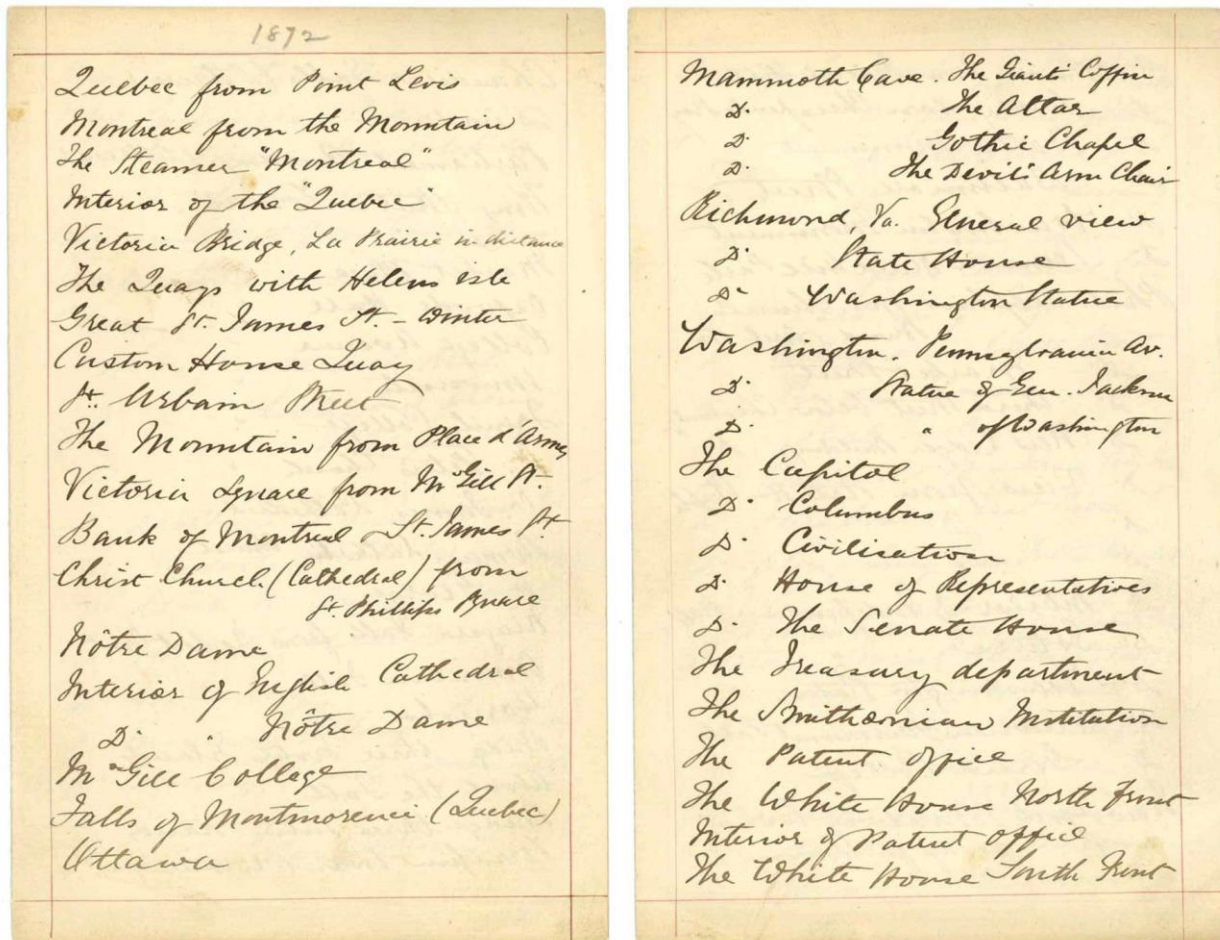 1872
Quebec from Point Levis
Montreal from the Mountain
The Steamer "Montreal"
Interior of the "Quebec"
Victoria Bridge, La Prairie in distance
The Quays with Helens isle
Great St. James St. - Winter
Custom House Quay
St. Urbain Street
The Mountain from Place d'Armes
Victoria Square from McGill St.
Bank of Montreal & St. James St.
Christ Church (Cathedral) from
St. Phillips Square
Nôtre Dame
Interior of English Cathedral
Do. " Nôtre Dame
McGill College
Falls of Montmorenci (Quebec)
Ottawa
Mammoth Cave. The Giants' Coffin
Do. The Altar
Do. Gothic Chapel
Do. The Devil's Arm Chair
Richmond, Va. General view
Do. State House
Do. Washington Statue
Washington. Pennsylvania Av.
Do. Statue of Gen. Jackson
Do. " of Washington
The Capitol
Do. Columbus
Do. Civilisation
Do. House of Representatives
Do. The Senate House
The Treasury department
The Smithsonian Institution
The Patent Office
The White House North Front
Interior of Patent Office
The White House South Front